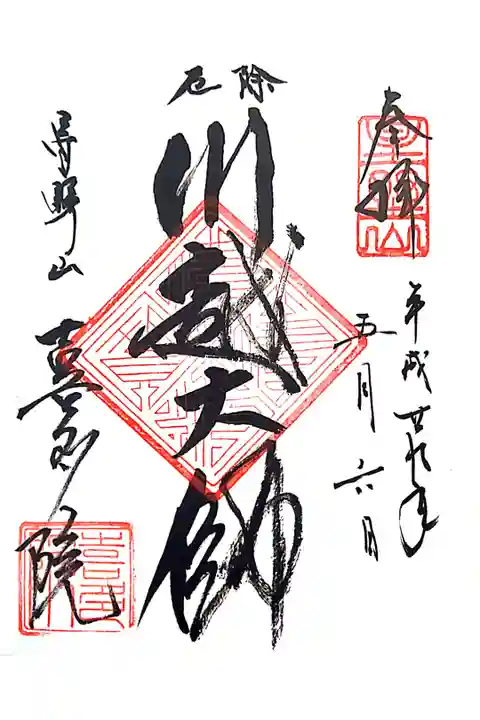 奉拝
平成廿九年
五月六日
厄除
川越大師
星野山
喜多院